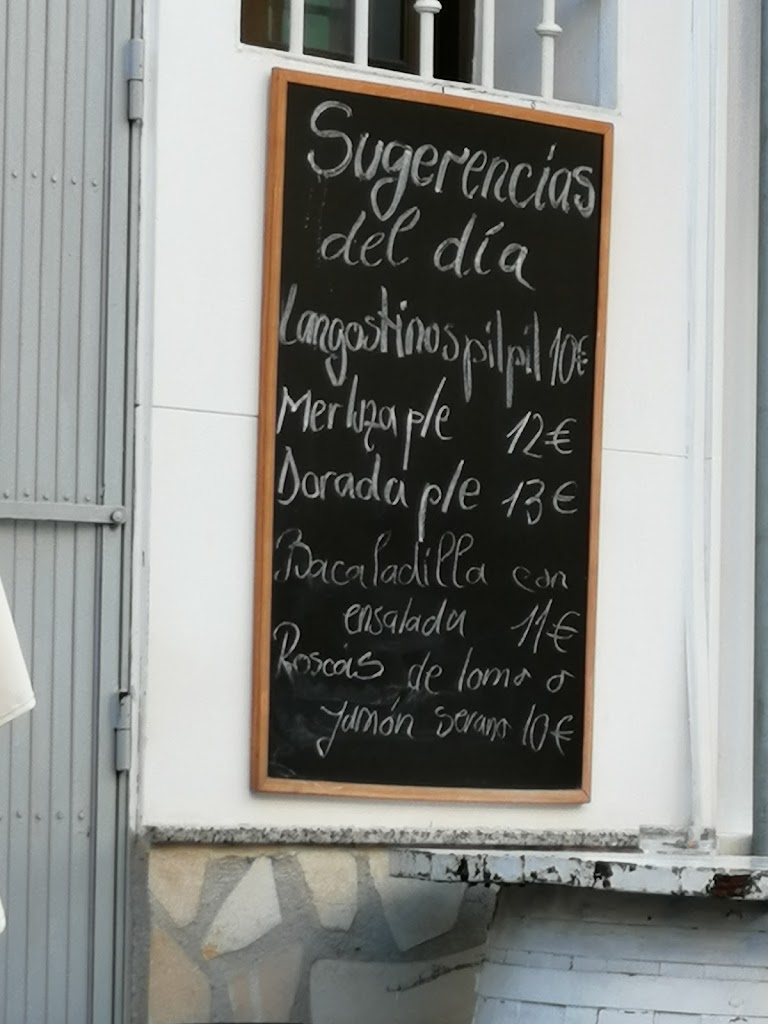 Sugerencias
del día
Langostinos pil pil 10€
Merluza p/e 12€
Dorada p/e 13€
Bacaladilla con
ensalada 11€
Roscas de lomo o
Jamón serano 10€